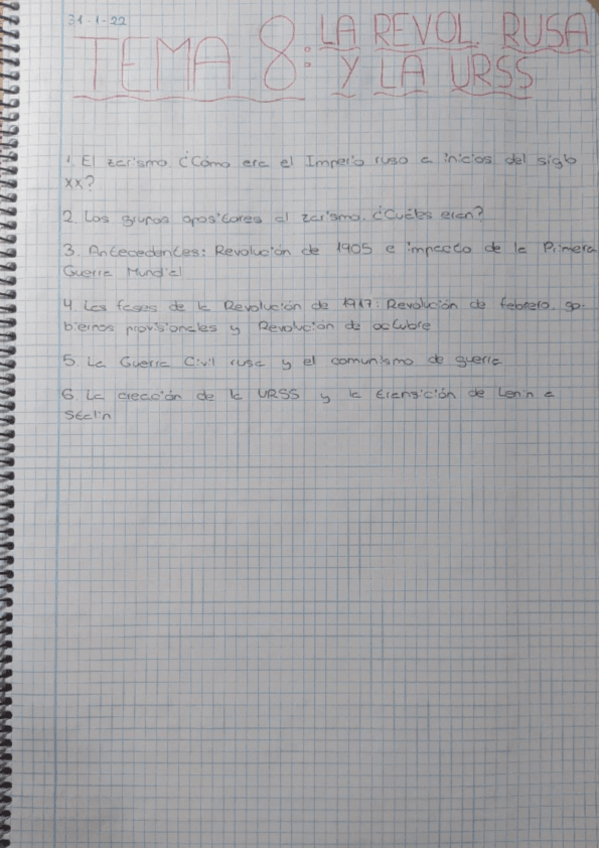 31-1-22
TEMA 8: LA REVOL. RUSA
Y LA URSS
1. El zarismo. ¿Cómo era el Imperio ruso a inicios del siglo
XX?
2. Los grupos opositores al zarismo. ¿Cuáles eran?
3. Antecedentes: Revolución de 1905 e impacto de la Primera
Guerra Mundial
4. Las fases de la Revolución de 1917: Revolución de febrero, go-
biernos provisionales y Revolución de octubre
5. La Guerra Civil rusa y el comunismo de guerra
6. La creación de la URSS y la transición de Lenin a
Stalin